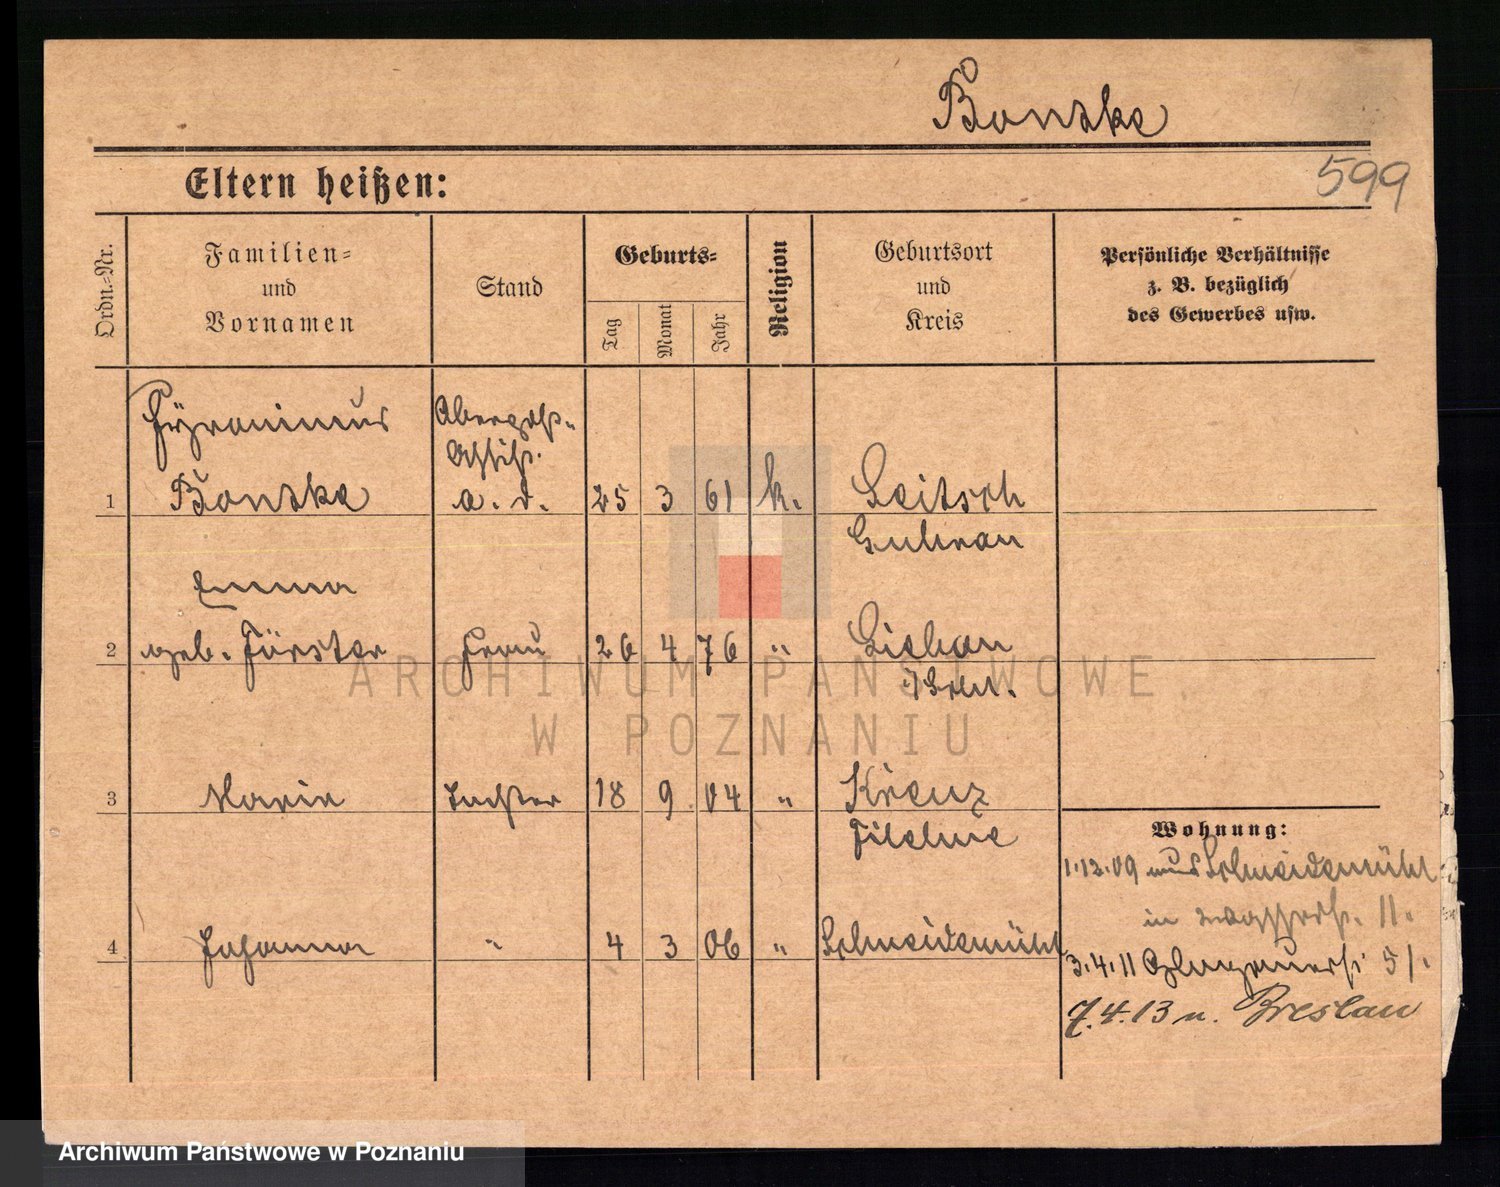 Bonske
599
Eltern heißen:
Ordn.-Nr.
Familien-
und
Vornamen
Stand
Geburts-
Tag
Monat
Jahr
Religion
Geburtsort
und
Kreis
Persönliche Verhältnisse
z. B. bezüglich
des Gewerbes usw.
Hyronimus
Assist.
1 Bonske a. D. 25 3 61 k. Leitsch
Guhrau
Emma
2 geb. Förster Frau 26 4 76 " Lichau
3 Maria Tochter 18 9 04 " Kreuz
Filehne
Wohnung:
1.12.09 aus Schneidemühl
in Wasserstr. 11.
4 Johanna " 4 3 06 " Schneidemühl
3.4.11 Glogauerstr 51.
7.4.13 n. Breslau
ARCHIWUM PAŃSTWOWE
W POZNANIU
Archiwum Państwowe w Poznaniu